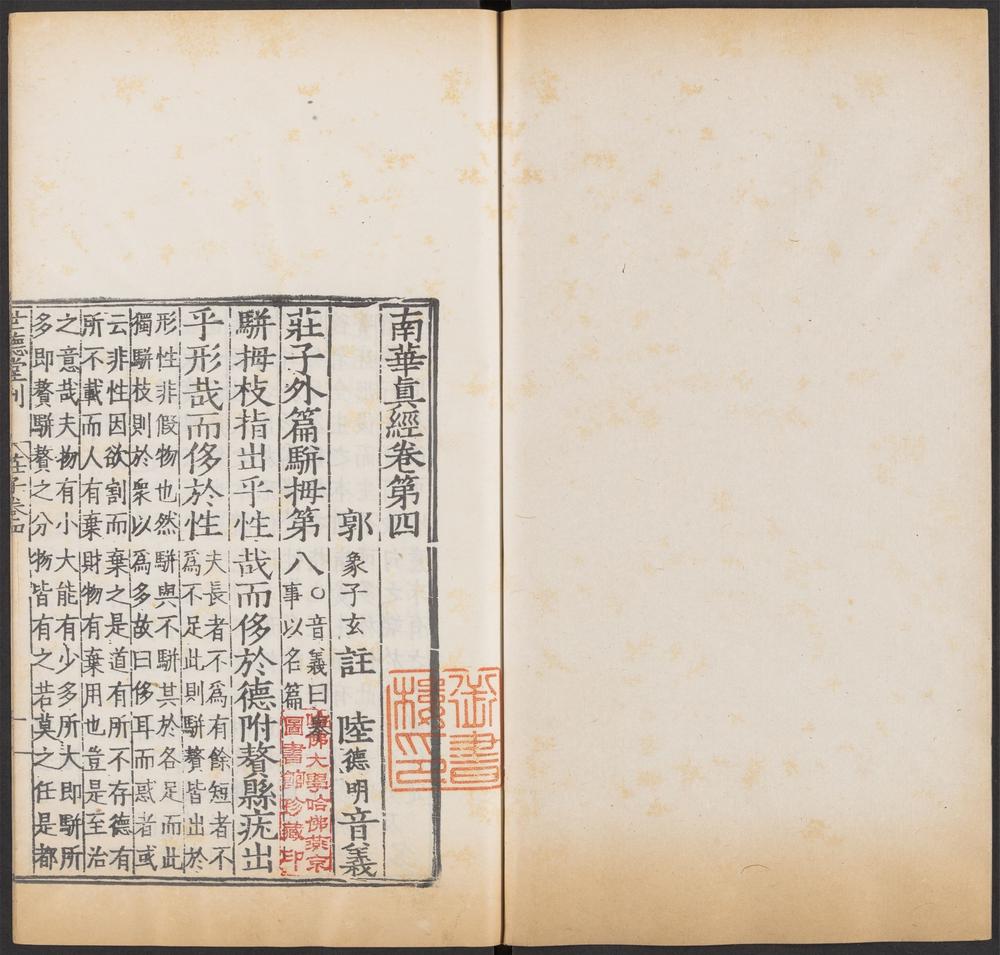 南華眞經卷第四
郭象子玄註　陸德明音義
莊子外篇騈拇第八○音義曰舉
事以名篇
騈拇枝指出乎性哉而侈於德附贅縣疣出
乎形哉而侈於性夫長者不爲有餘短者不
爲不足此則騈贅皆出於
形性非假物也然騈與不騈其於各足而此
獨騈枝則於衆以爲多故曰侈耳而惑者或
云非性因欲割而棄之是道有所不存德有
所不載而人有棄財物有棄用也豈是至治
之意哉夫物有小大能有少多所大即騈所
多即贅騈贅之分物皆有之若莫之任是都
世德堂刊
莊子卷四
一
御書
樓印
哈佛大學哈佛燕京
圖書館珍藏印